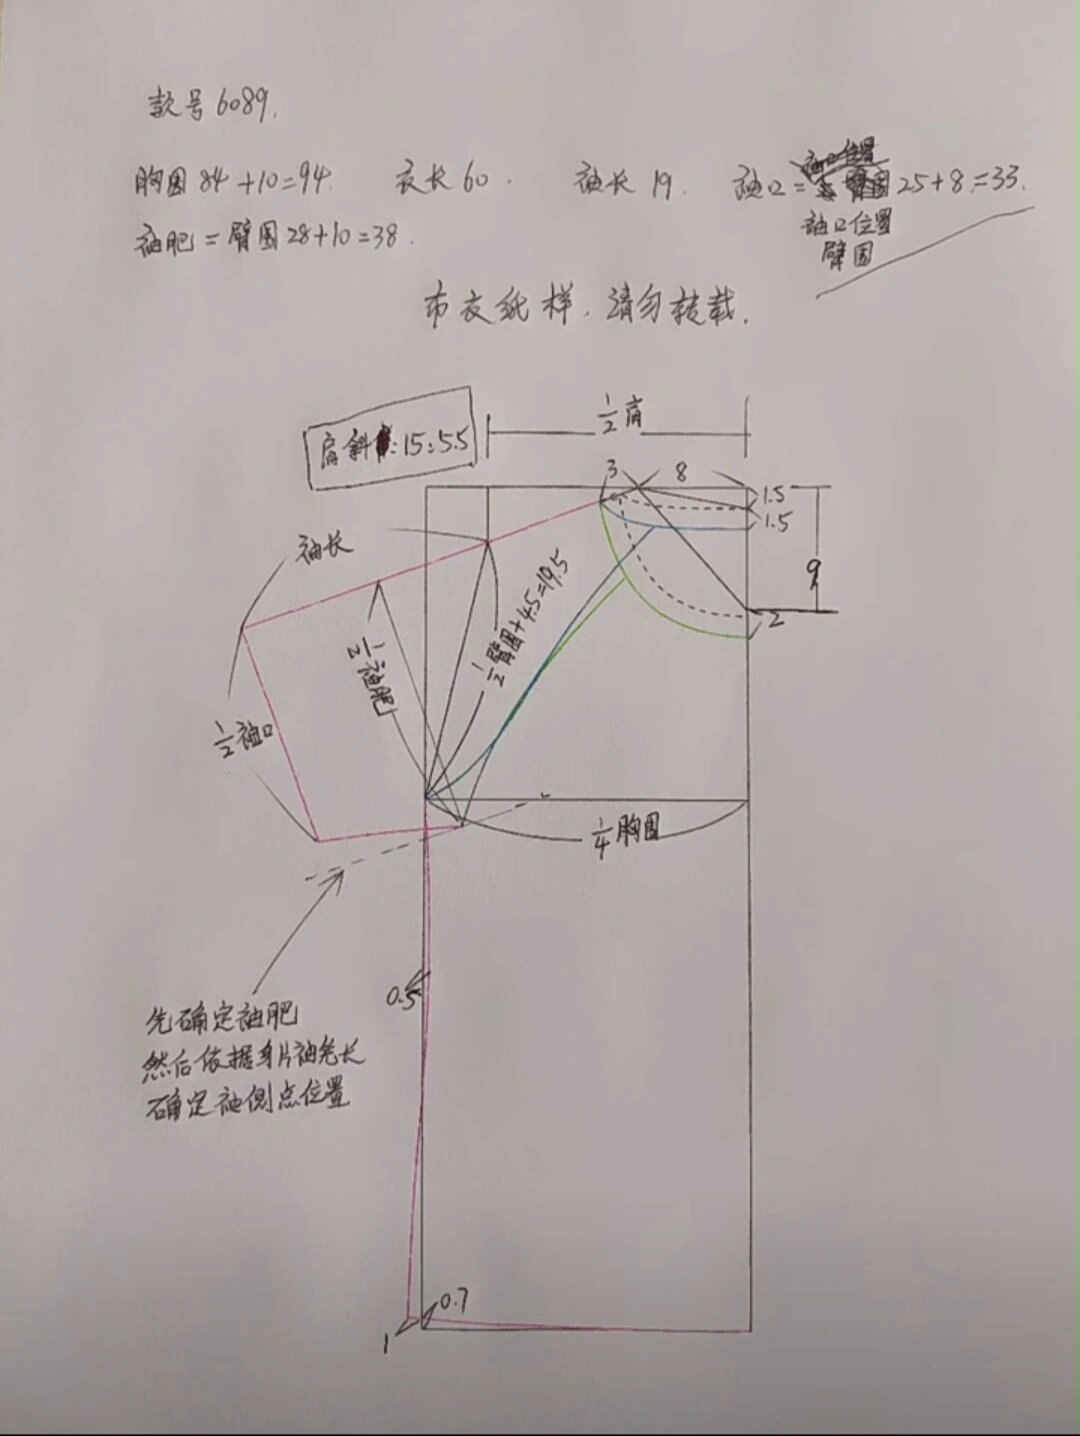 款号6089.
胸围84+10=94. 衣长60. 袖长19. 袖口= 臂围25+8=33.
袖口位置
臂围
袖肥=臂围28+10=38.
布衣纸样.请勿转载.
1/2肩
肩斜:15:5.5
3
8
1.5
1.5
9
2
袖长
1/2臂围+4.5=19.5
1/2袖肥
1/2袖口
1/4胸围
先确定袖肥
然后依据身片袖笼长
确定袖侧点位置
0.5
0.7
1